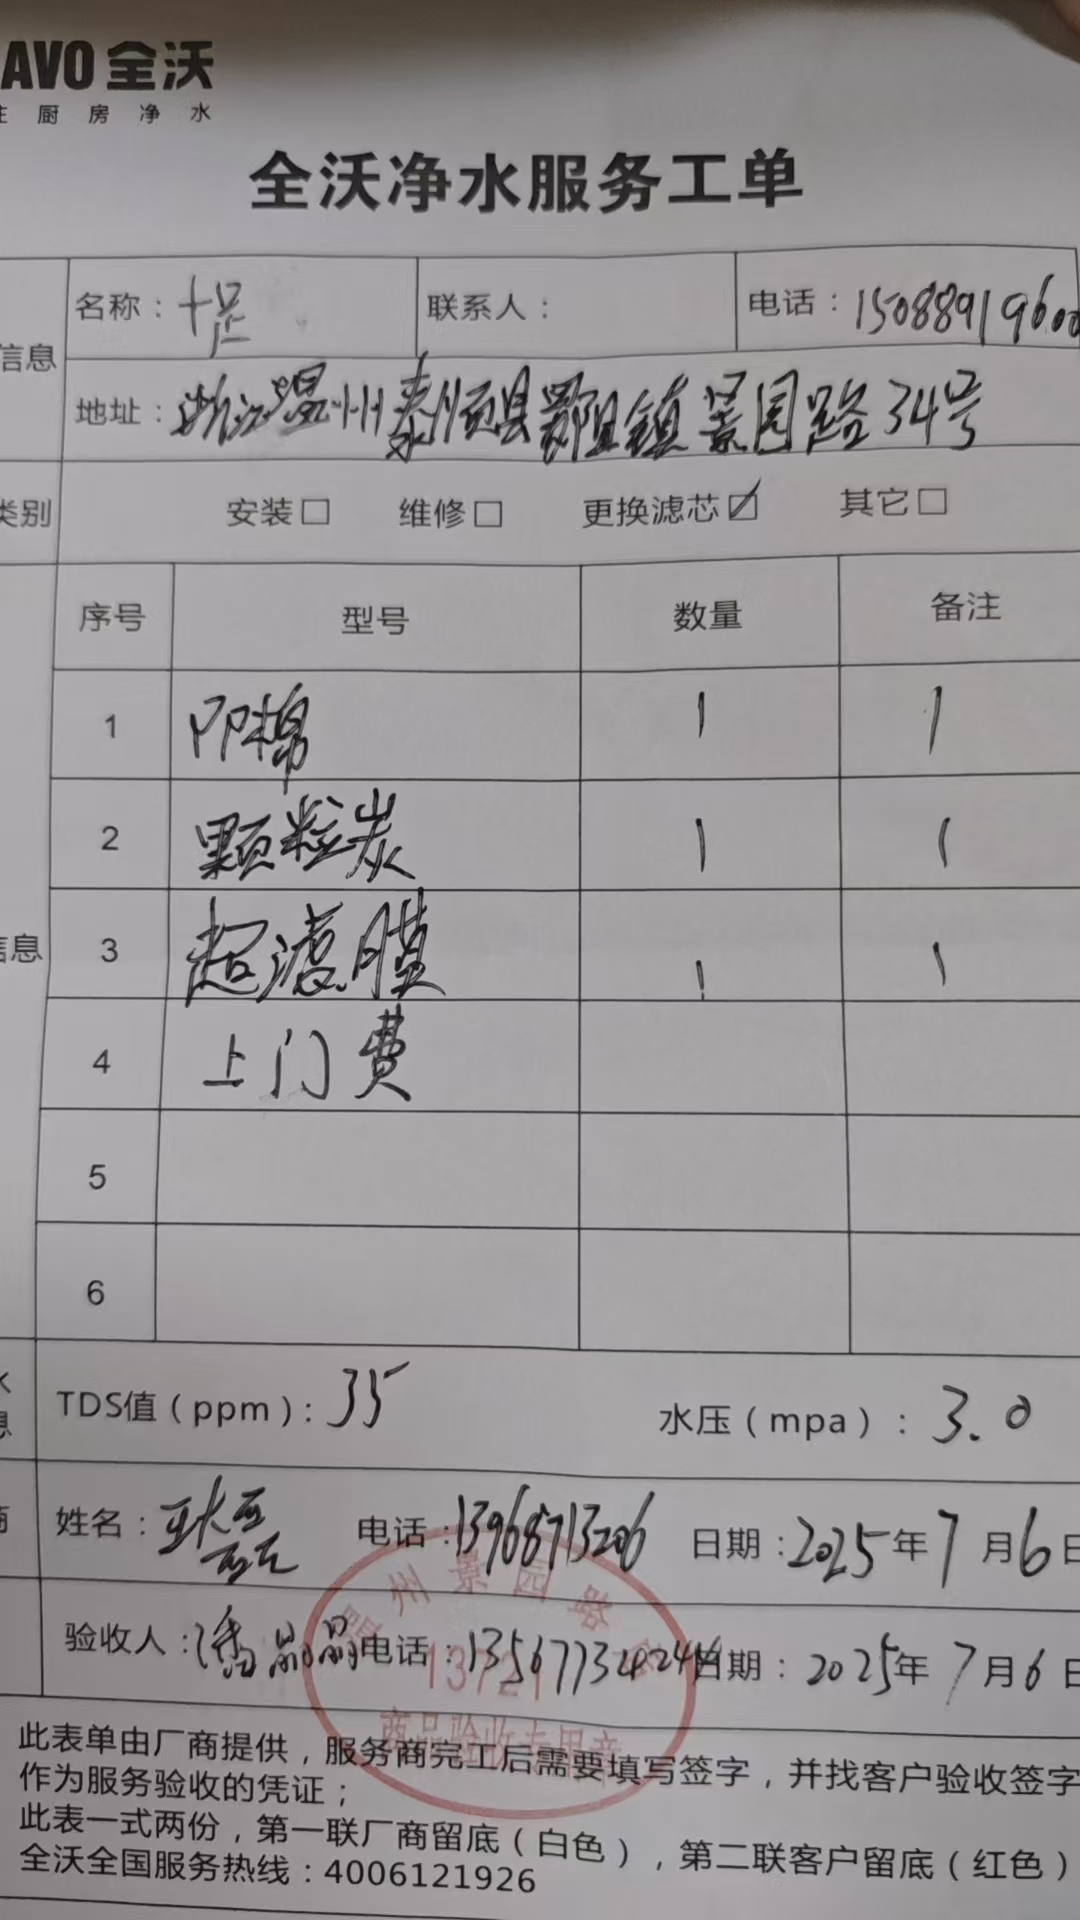 AVO 全沃
厨房净水
全沃净水服务工单
信息
名称：十足 联系人： 电话：15088919600
地址：浙江温州泰顺县罗阳镇景园路34号
类别 安装□ 维修□ 更换滤芯☑ 其它□
序号 型号 数量 备注
1 PP棉 1 1
2 颗粒炭 1 1
信息
3 超滤膜 1 1
4 上门费
5
6
TDS值（ppm）：35 水压（mpa）：3.0
姓名： 电话：13968713206 日期：2025年7月6日
验收人：潘 电话： 日期：2025年7月6日
州景园路
商品验收专用章
此表单由厂商提供，服务商完工后需要填写签字，并找客户验收签字
作为服务验收的凭证；
此表一式两份，第一联厂商留底（白色），第二联客户留底（红色）
全沃全国服务热线：4006121926